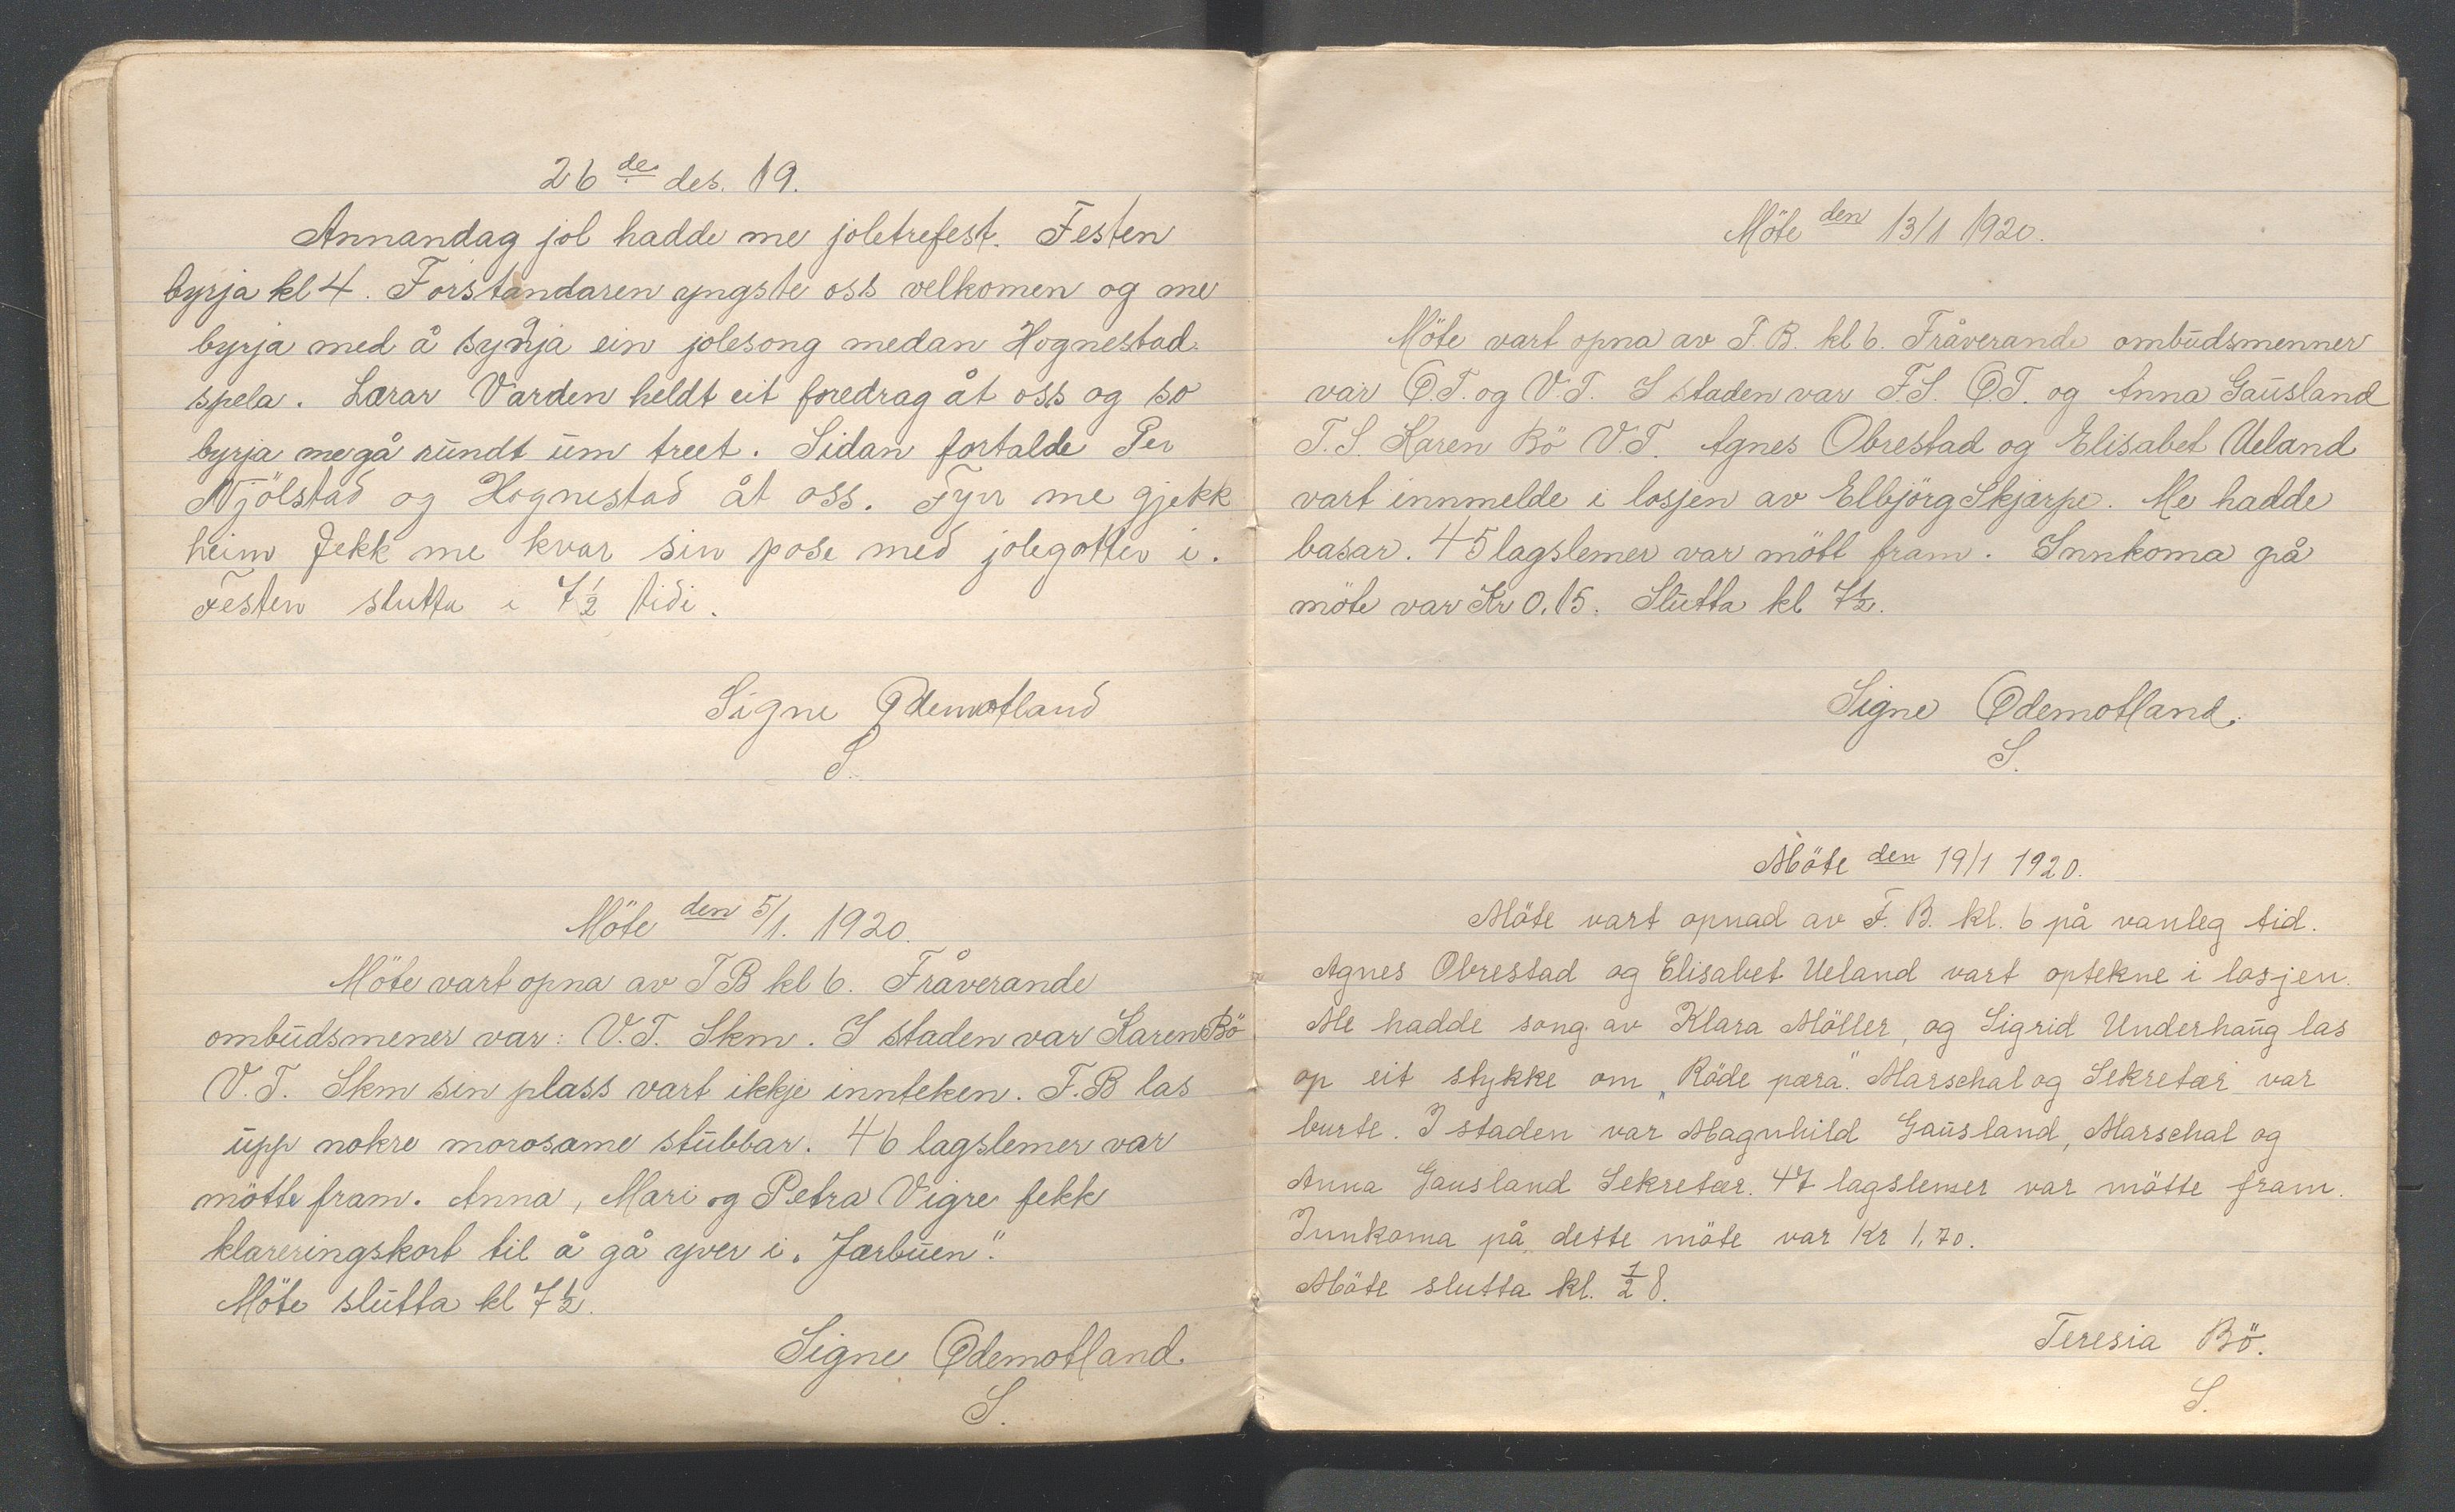 26 de des. 19.
Annandag jol hadde me joletrefest. Festen
byrja kl 4. Forstandaren yngste oss velkomen og me
byrja med å syngja ein jolesong medan Hognestad
spela. Lærar Varden heldt eit foredrag åt oss og so
byrja me gå rundt um treet. Sidan fortalde Per
Njölstad og Hognestad åt oss. Fyrr me gjekk
heim fekk me kvar sin pose med jolegotter i.
Festen slutta i 7½ tidi.
Signe Ødemotland
S.
Möte den 5/1. 1920.
Möte vart opna av F B kl 6. Fråverande
ombudsmener var: V.T. Skm. I staden var Karen Bö
V.T. Skm sin plass vart ikkje innteken. F.B las
upp nokre morosame stubbar. 46 lagslemer var
mötte fram. Anna, Mari og Petra Vigre fekk
klareringskort til å gå yver i „Jærbuen".
Möte slutta kl 7½.
Signe Ødemotland.
S.
Möte den 13/1 1920.
Möte vart opna av F.B. kl 6. Fråverande ombudsmenner
var Ø.T. og V.T. I staden var F.S. Ø.T. og Anna Gausland
F.S. Karen Bö V.T. Agnes Obrestad og Elisabet Ueland
vart innmelde i losjen av Elbjörg Skjærpe. Me hadde
basar. 45 lagslemer var mött fram. Innkoma på
möte var Kr 0.15. Slutta kl 7½.
Signe Ødemotland.
S.
Möte den 19/1 1920.
Möte vart opnad av F. B. kl. 6 på vanleg tid.
Agnes Obrestad og Elisabet Ueland vart optekne i losjen.
Me hadde song av Klara Möller, og Sigrid Underhaug las
op eit stykke om „Röde pæra". Marschal og Sekretær var
burte. I staden var Magnhild Gausland, Marschal og
Anna Gausland Sekretær. 47 lagslemer var mötte fram.
Innkoma på dette möte var Kr 1,70.
Möte slutta kl. ½ 8.
Teresia Bö.
S.